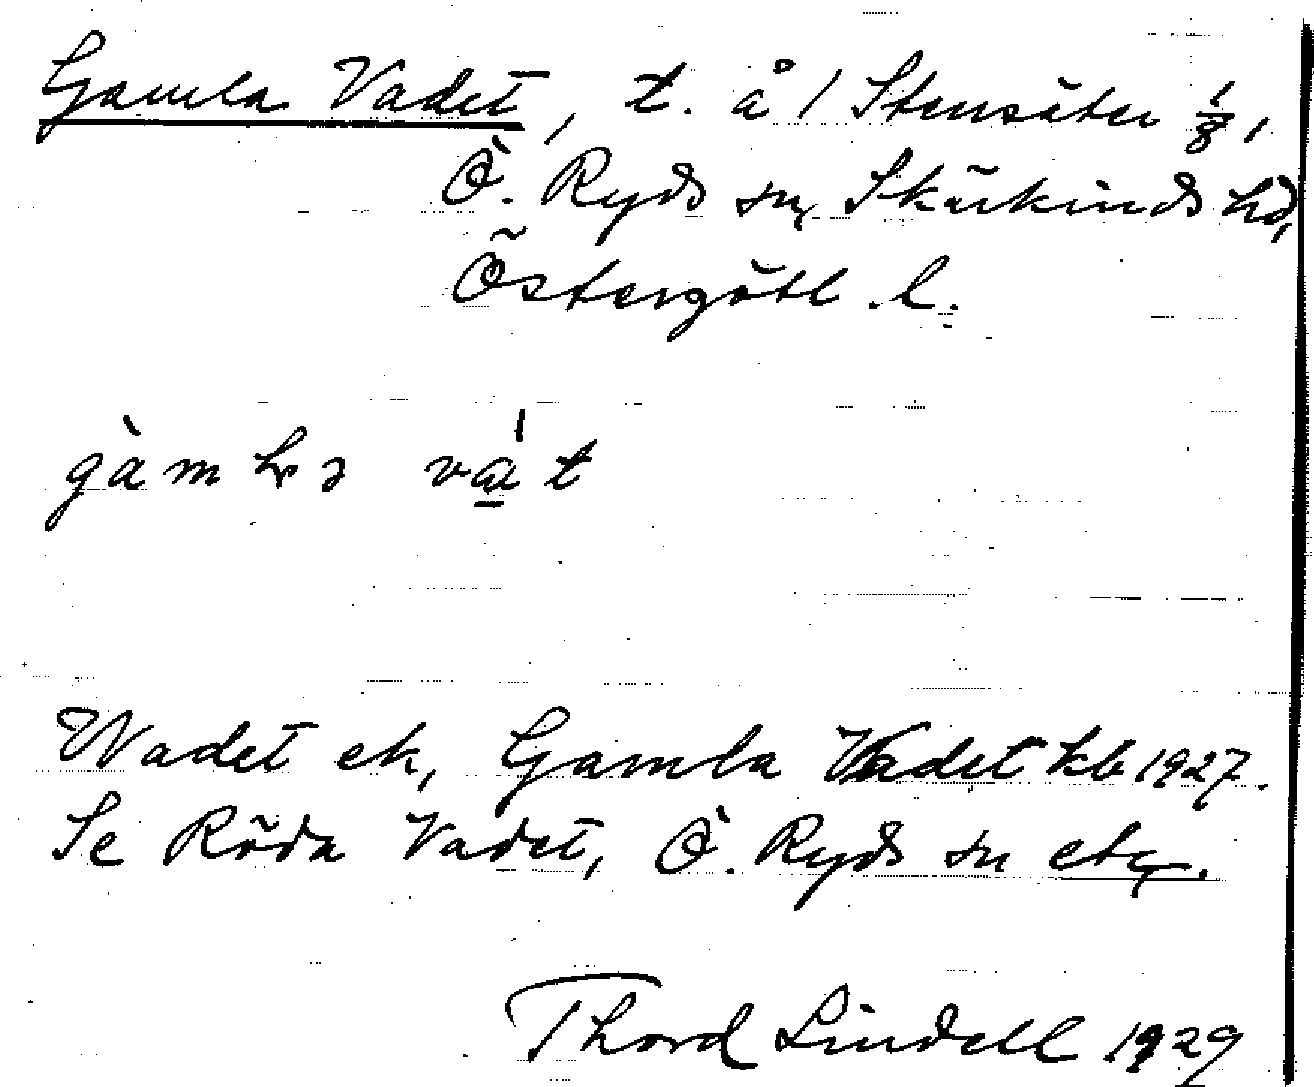 Gamla Vadet, t. å 1 Stensäter 1/8,
Ö. Ryds sn, Skärkinds hd,
Östergötl. l.
gàmLə vát
Wadet ek, Gamla Vadet kb 1927.
Se Röda Vadet, Ö. Ryds sn etc.
Thord Lindell 1929